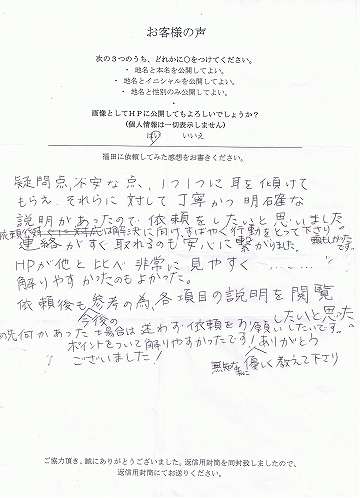 お客様の声
次の3つのうち、どれかに○をつけてください。
・ 地名と本名を公開してよい。
・ 地名とイニシャルを公開してよい。
・ 地名と性別のみ公開してよい。
画像としてHPに公開してもよろしいでしょうか?
(個人情報は一切表示しません)
はい いいえ
福田に依頼してみた感想をお書きください。
疑問点、不安な点、1つ1つに耳を傾けて
もらえ、それらに対して丁寧かつ明確な
説明があったので依頼をしたいと思いました
依頼後は 解決に向け、すばやく行動をとって下さり 頼もしかったです。
連絡がすぐ取れるのも安心に繋がりました。
HPが他と比べ非常に見やすく
解りやすかったのもよかった。
依頼後も参考の為、各項目の説明を閲覧
今後の
先何かあった場合は迷わず依頼をお願いしたいです。 したいと思った
ポイントをついて解りやすかったです! ありがとう
ございました! 無知な私に優しく教えて下さり
ご協力頂き、誠にありがとうございました。返信用封筒を同封致しましたので、
返信用封筒にてお送りください。